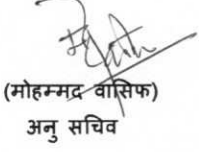 (मोहम्मद वासिफ)
अनु सचिव